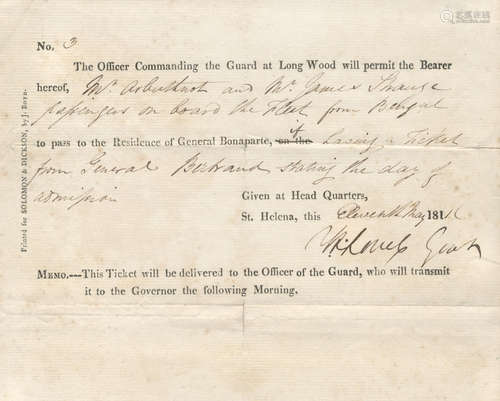 No. 3
The Officer Commanding the Guard at Long Wood will permit the Bearer
hereof, Mr. Arbuthnot and Mr. James Strange
passengers on board the Fleet from Bengal
to pass to the Residence of General Bonaparte, on the if having a Ticket
from General Bertrand stating the day of
admission
Given at Head Quarters,
St. Helena, this Eleventh May 1816
H: Lowe Govr
MEMO.—This Ticket will be delivered to the Officer of the Guard, who will transmit
it to the Governor the following Morning.
Printed for SOLOMON & DICKSON, by J. BOYD.